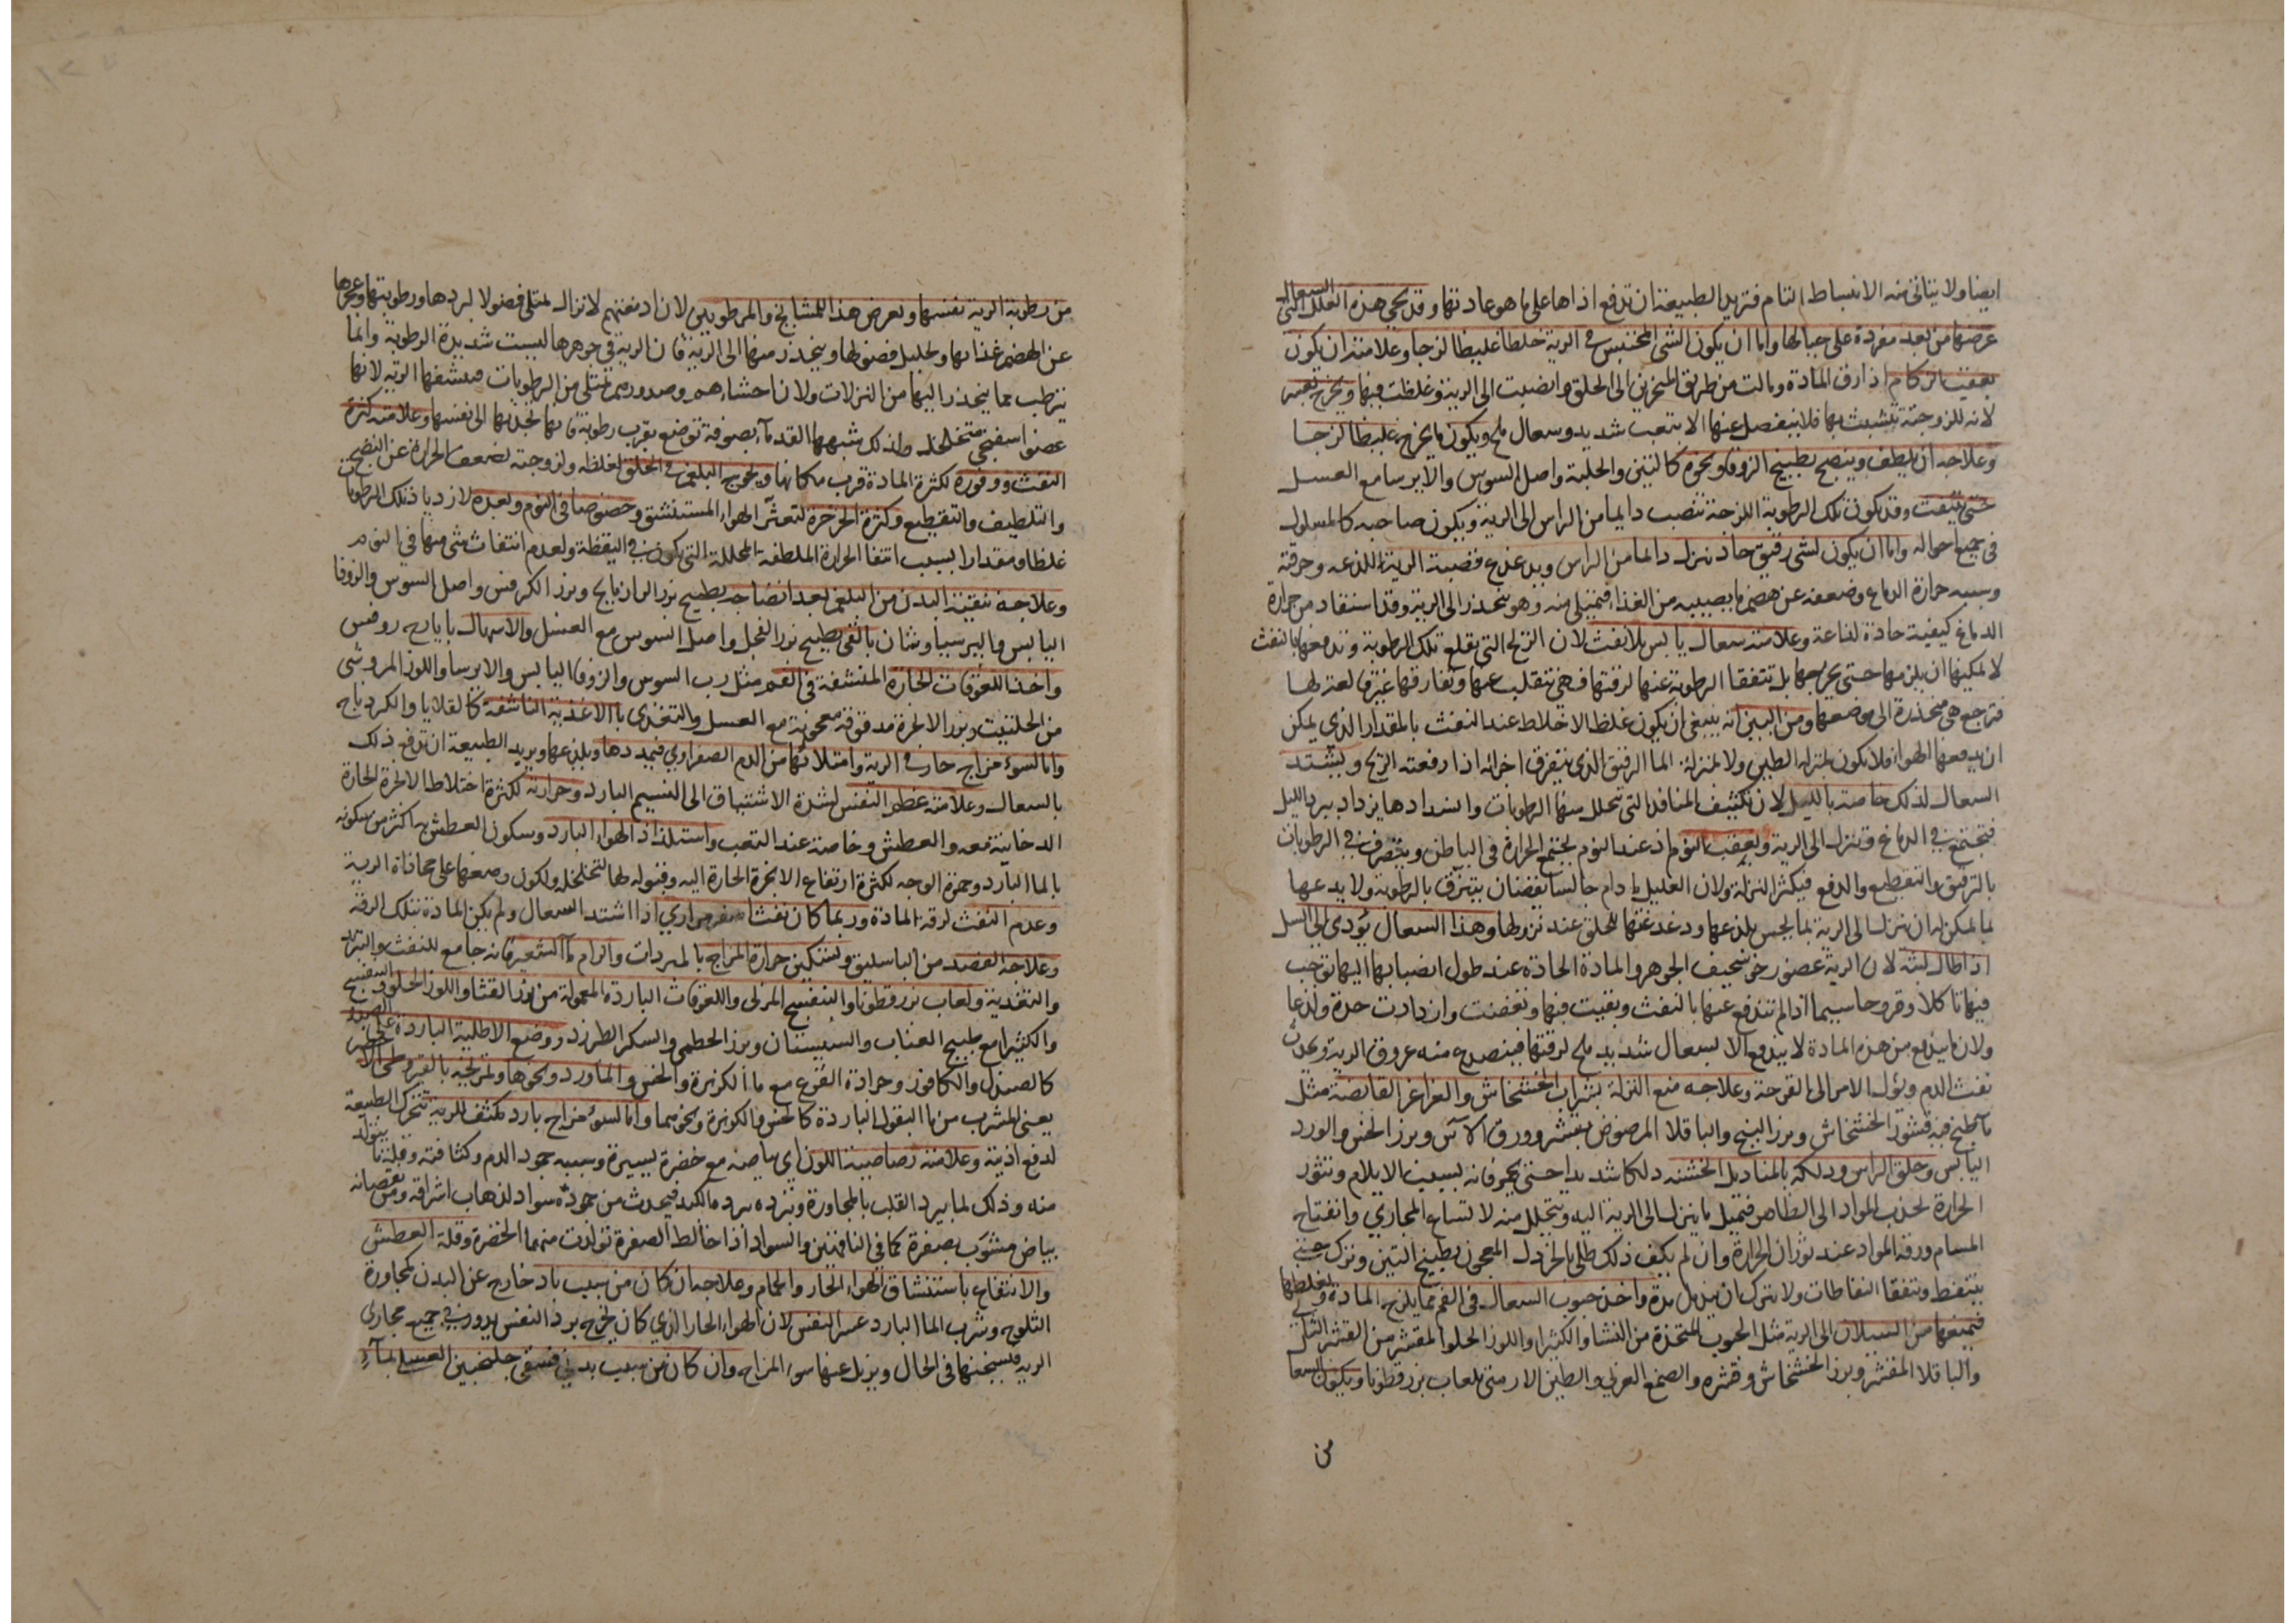 ايضا ولا يتاتى منه الانبساط التام فتريد الطبيعة ان تدفع اذاها على ما هو عادتها وقد يجي هذه العلل التي السعال
عرضها من بعد مفردة على حيالها واما ان يكون الشى المحتبس فى الرية خلطا غليظا لزجا وعلامته ان يكون
بعقب الزكام اذا رق المادة ومالت من طريق المنخرين الى الحلق وانصبت الى الرية وغلظت فيها ويخرج بعسر
لانه للزوجته يتشبث بها فلا ينفصل عنها الا بتعب شديد وسعال ملح ويكون ما يخرج غليظا لزجا
وعلاجه ان يلطف وينضج بطبيخ الزوفا ونحوه كالتين والحلبة واصل السوس والايرسا مع العسل
حتى ينفث وقد يكون تلك الرطوبة اللزجة تنصب دايما من الراس الى الرية ويكون صاحبه كالمسلول
فى جميع احواله واما ان يكون لشى رقيق حاد ينزل دايما من الراس ويدغدغ قصبة الرية للذعه وحرقته
وسببه حرارة الدماغ وضعفه عن هضم ما يصيبه من الغذا فيمتلى منه وهو يتحدر الى الرية وقد استفاد من حرارة
الدماغ كيفية حادة لذاعة وعلامته سعال يابس بلا نفث لان الريح التى تقلع تلك الرطوبة وتدفعها بالنفث
لا يمكنها ان يلزمها حتى يخرجها بل تتفقا الرطوبة عنها لرقتها فهى تنقلب عنها وتفارقها غير قالعة لها
فترجع هى منحدرة الى موضعها ومن البين انه ينبغى ان يكون غلظ الاخلاط عند النفث بالمقدار الذي يمكن
ان يدفعها الهوا فلا يكون بمنزلة الطين ولا بمنزلة الما الرقيق الذى يتفرق اجزائه اذا رفعته الريح ويشتد
السعال لذلك خاصة بالليل لان تكثيف المنافذ التى تتحلل منها الرطوبات وانسدادها يزداد ببرد الليل
فتجتمع فى الدماغ وتنزل الى الرية وبعقب النوم اذ عند النوم يجتمع الحرارة فى الباطن ويتصرف فى الرطوبات
بالترقيق والتقطيع والدفع فيكثر النزلة ولان العليل ما دام جالسا يقضان يبزق بالرطوبة ولا يدعها
لما يمكنه ان ينزل الى الرية لما يحس بلذعها ودغدغتها للحلق عند نزولها وهذا السعال يؤدى الى السل
اذا طال لبثه لان الرية عضو رخو سخيف الجوهر والمادة الحادة عند طول انصبابها اليها توجب
فيها تاكلا وقروحا سيما اذا لم تندفع عنها بالنفث وبقيت فيها وتعفنت وازدادت حدة ولذعا
ولان ما يندفع من هذه المادة لا يندفع الا بسعال شديد ملح لرقتها فينصدع منه عروق الرية ويحدث
نفث الدم ويؤل الامر الى القرحة وعلاجه منع النزلة بشراب الخشخاش والغراغر القابضة مثل
ما طبخ فيه قشور الخشخاش وبزر البنج والباقلا المرضوض بقشره وورق الآس وبزر الخس والورد
اليابس وحلق الراس ودلكه بالمناديل الخشنه دلكا شديدا حتى يحمر فانه بسبب الايلام وتثور
الحرارة تجذب المواد الى الظاهر فتميل ما ينزل الى الرية اليه ويتحلل منه لاتساع المجارى وانفتاح
المسام ورقة المواد عند ثوران الحرارة وان لم يكف ذلك طلى بالخردل المعجون بطبيخ التين وترك حتى
يتنفط وتتفقا النفاطات ولا يترك ان يندمل مدة واخذ حبوب السعال فى الفم مما يلزج المادة ويغلظها
فيمنعها من السيلان الى الرية مثل الحبوب المتخذة من النشا والكثيرا واللوز الحلو المقشر من القشر
والباقلا المقشر وبزر الخشخاش وقشره والصمغ العربى والطين الارمنى بلعاب بزر قطونا ويكون السعا
من
من رطوبة الرية نفسها ويعرض هذا للمشايخ والمرطوبين لان ادمغتهم لا تزال تمتلى فضولا لبردها ورطوبتها وعجزها
عن هضم غذائها وتحليل فضولها ويتحدر منها الى الرية فان الرية فى جوهرها ليست شديدة الرطوبة وانما
يترطب مما يتحدر اليها من النزلات ولان احشاءهم وصدورهم تمتلى من الرطوبات فينشفها الرية لانها
عضو اسفنجى متخلخل ولذلك شبهها القدماء بصوفة توضع بقرب رطوبة فانها تجذبها الى نفسها وعلامته كثرة
النفث ووفوره لكثرة المادة وقرب مكانها ولحوج البلغم فى الحلق لغلظه ولزوجته لضعف الحرارة عن النضج
والتلطيف والتقطيع وكثرة الخرخرة لتعثر الهوا المستنشق وخصوصا فى النوم وبعده لازدياد تلك الرطوبات
غلظا ومقدارا بسبب انتفا الحرارة الملطفة المحللة التى يكون فى اليقظة ولعدم انتفاث شى منها فى النوم
وعلاجه تنقية البدن من البلغم بعد انضاجه بطبيخ بزر الرازيانج وبزر الكرفس واصل السوس والزوفا
اليابس والبرسياوشان بالقى بطبيخ بزر الفجل واصل السوس مع العسل والاسهال بايارج روفس
واخذ اللعوقات الحارة المنشفة فى الفم مثل رب السوس والزوفا اليابس والايرسا واللوز المر وشى
من الحلتيت وبزر الانجرة مدقوقة معجونة مع العسل والتغذى بالاغذية الناشفة كالقلايا والكردباج
واما لسوء مزاج حار فى الرية وامتلائها من الدم الصفراوى فيمددها ويلذعها ويريد الطبيعة ان تدفع ذلك
بالسعال وعلامته عظم النفس لشدة الاشتياق الى النسيم البارد وحرارته لكثرة اختلاط الابخرة الحارة
الدخانية معه والعطش وخاصة عند التعب واستلذاذ الهوا البارد وسكون العطش به اكثر من سكونه
بالما البارد وحمرة الوجه لكثرة ارتفاع الابخرة الحارة اليه وقبوله لها لتخلخله ولكون وضعها على محاذاة الرية
وعدم النفث لرقة المادة وربما كان نفثا صفراوي اذا اشتد السعال ولم يكن المادة بتلك الرقة
وعلاجه الفصد من الباسليق وتسكين حرارة المزاج بالمبردات والزام ماء الشعير فانه جامع للنفث والتبريد
والتغذية ولعاب بزر قطونا والبنفسج المربى واللعوقات الباردة المعمولة من بزر القثا واللوز الحلو والبنفسج
والكثيرا مع طبيخ العناب والسبستان وبزر الخطمى والسكر الطبرزد ووضع الاطلية الباردة على الصدر
كالصندل والكافور وجرادة القرع مع ما الكزبرة والخس والماورد ونحوها وتمريخه بالقيروطى الاخضر
يعنى المشرب من ما البقول الباردة كالخس والكزبرة ونحوهما واما لسوء مزاج بارد مكثف للرية تتحرك الطبيعة
لدفع اذيته وعلامته رصاصية اللون اى بياضه مع خضرة يسيرة وسببه جمود الدم وكثافته وقلة ما يتولد
منه وذلك لما يبرد القلب بالمجاورة وببرده يبرد الكبد فيحدث من جموده سواد لذهاب اشراقه ومن نقصانه
بياض مشوب بصفرة كما فى الناقهين والسواد اذا خالط الصفرة تولدت منهما الخضرة وقلة العطش
والانتفاع باستنشاق الهوا الحار والحمام وعلاجه ان كان من سبب باد خارج عن البدن كمجاورة
الثلوج وشرب الما البارد عسر النفس لان الهوا الحار الذي كان يخرج برد النفس يدور فى جميع مجارى
الرية فيسخنها فى الحال ويزيل عنها سوء المزاج وان كان من سبب بدنى فسقى جلنجبين العسل بماء